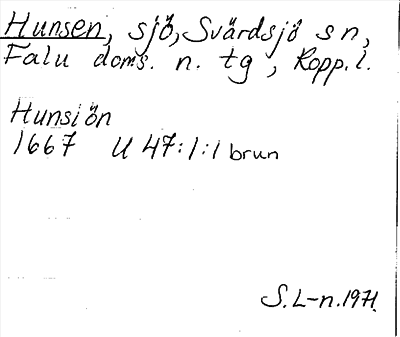 Hunsen, sjö, Svärdsjö sn,
Falu doms. n. tg, Kopp. l.
Hunsiön
1667 U 47:1:1 brun
S. L-n. 1971.